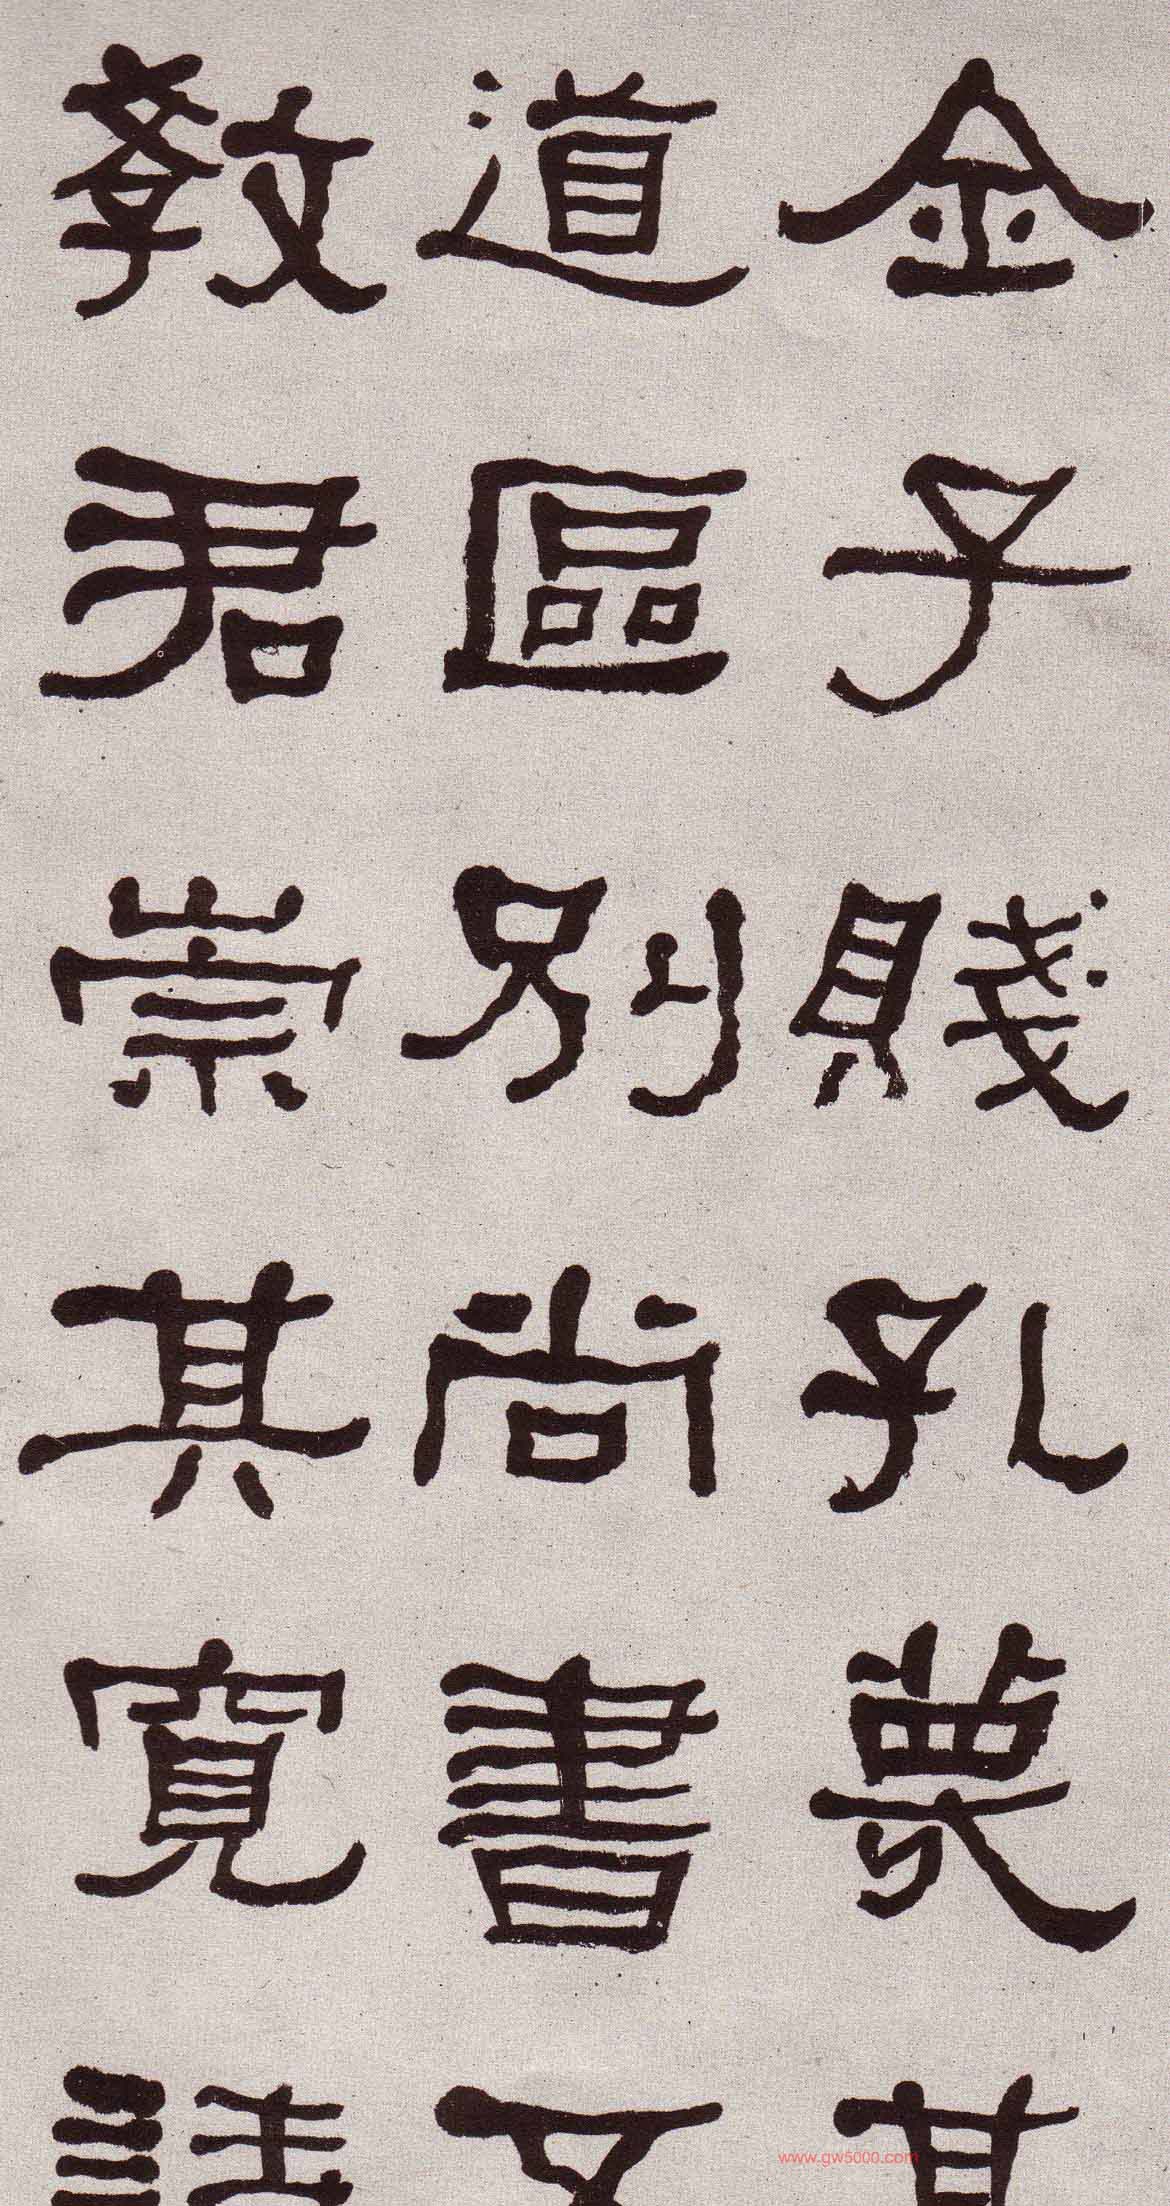 金子賤孔蔑其
道區別尚書五
教君崇其寬詩
www.gw5000.com